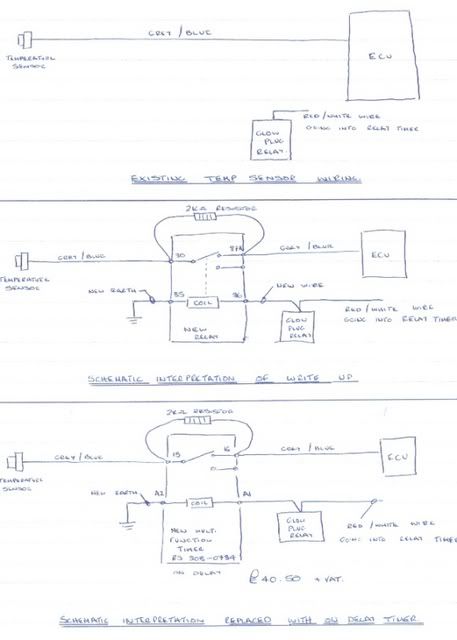 GREY / BLUE
TEMPERATURE
SENSOR
ECU
RED / WHITE WIRE
GOING INTO RELAY TIMER
GLOW
PLUG
RELAY
EXISTING TEMP SENSOR WIRING
2KΩ RESISTOR
30
87A
GREY / BLUE
GREY / BLUE
ECU
TEMPERATURE
SENSOR
NEW EARTH
85
COIL
86
NEW WIRE
RED / WHITE WIRE
GOING INTO RELAY TIMER
GLOW
PLUG
RELAY
NEW
RELAY
SCHEMATIC INTERPRETATION OF WRITE UP
2KΩ RESISTOR
15
16
GREY / BLUE
GREY / BLUE
ECU
TEMPERATURE
SENSOR
NEW EARTH
A2
COIL
A1
GLOW
PLUG
RELAY
RED / WHITE WIRE
GOING INTO RELAY TIMER
NEW MULTI
FUNCTION
TIMER
RS 308-0734
ON DELAY
£40.50 + VAT.
SCHEMATIC INTERPRETATION REPLACED WITH ON DELAY TIMER